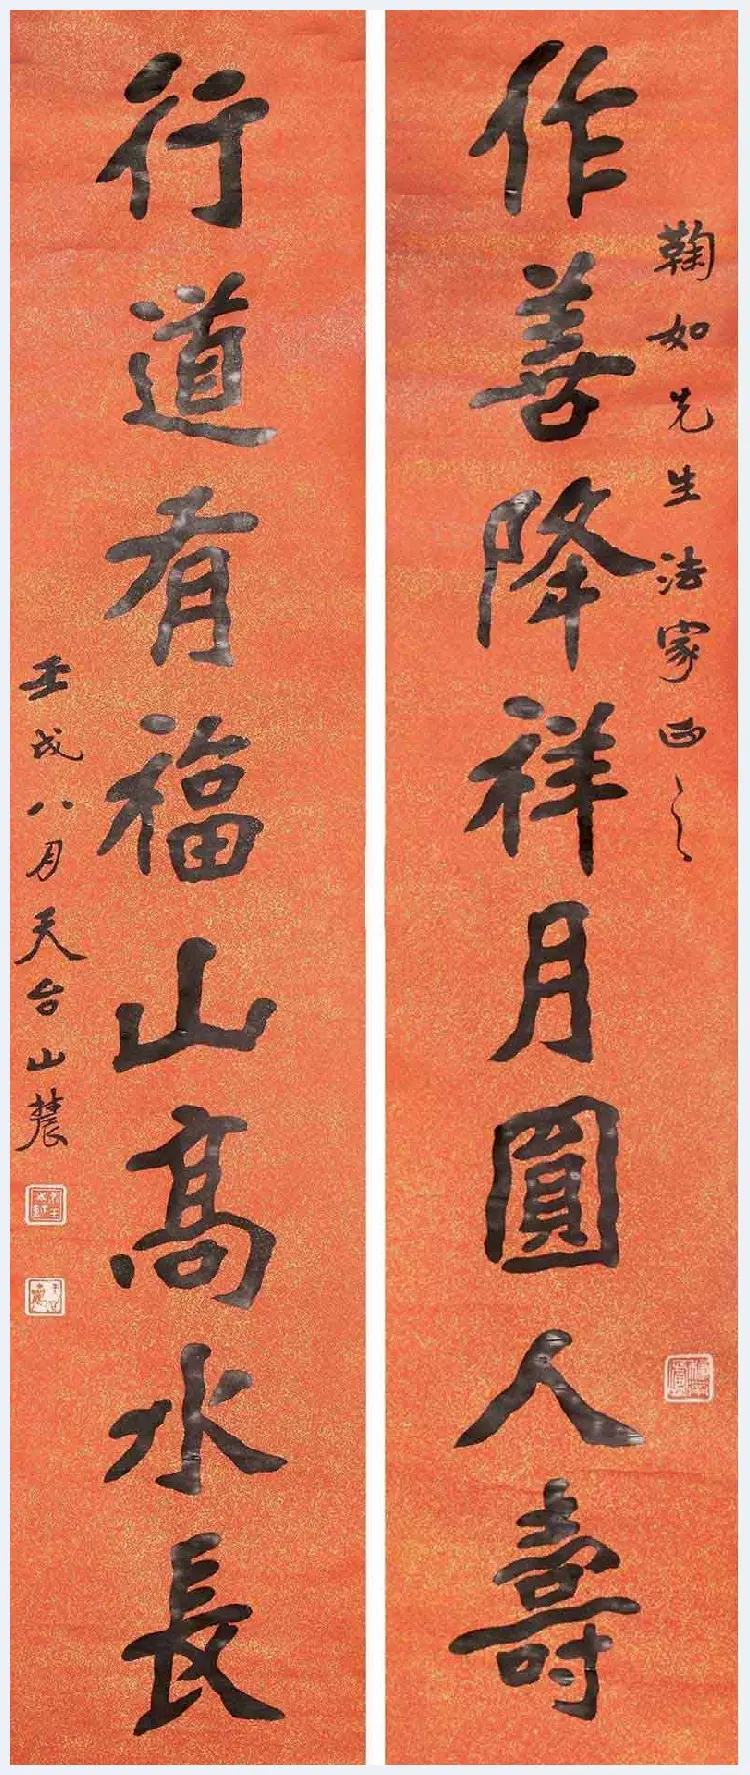 作善降祥月圓人壽
鞠如先生法家正之
行道有福山高水長
壬戌八月天台山農